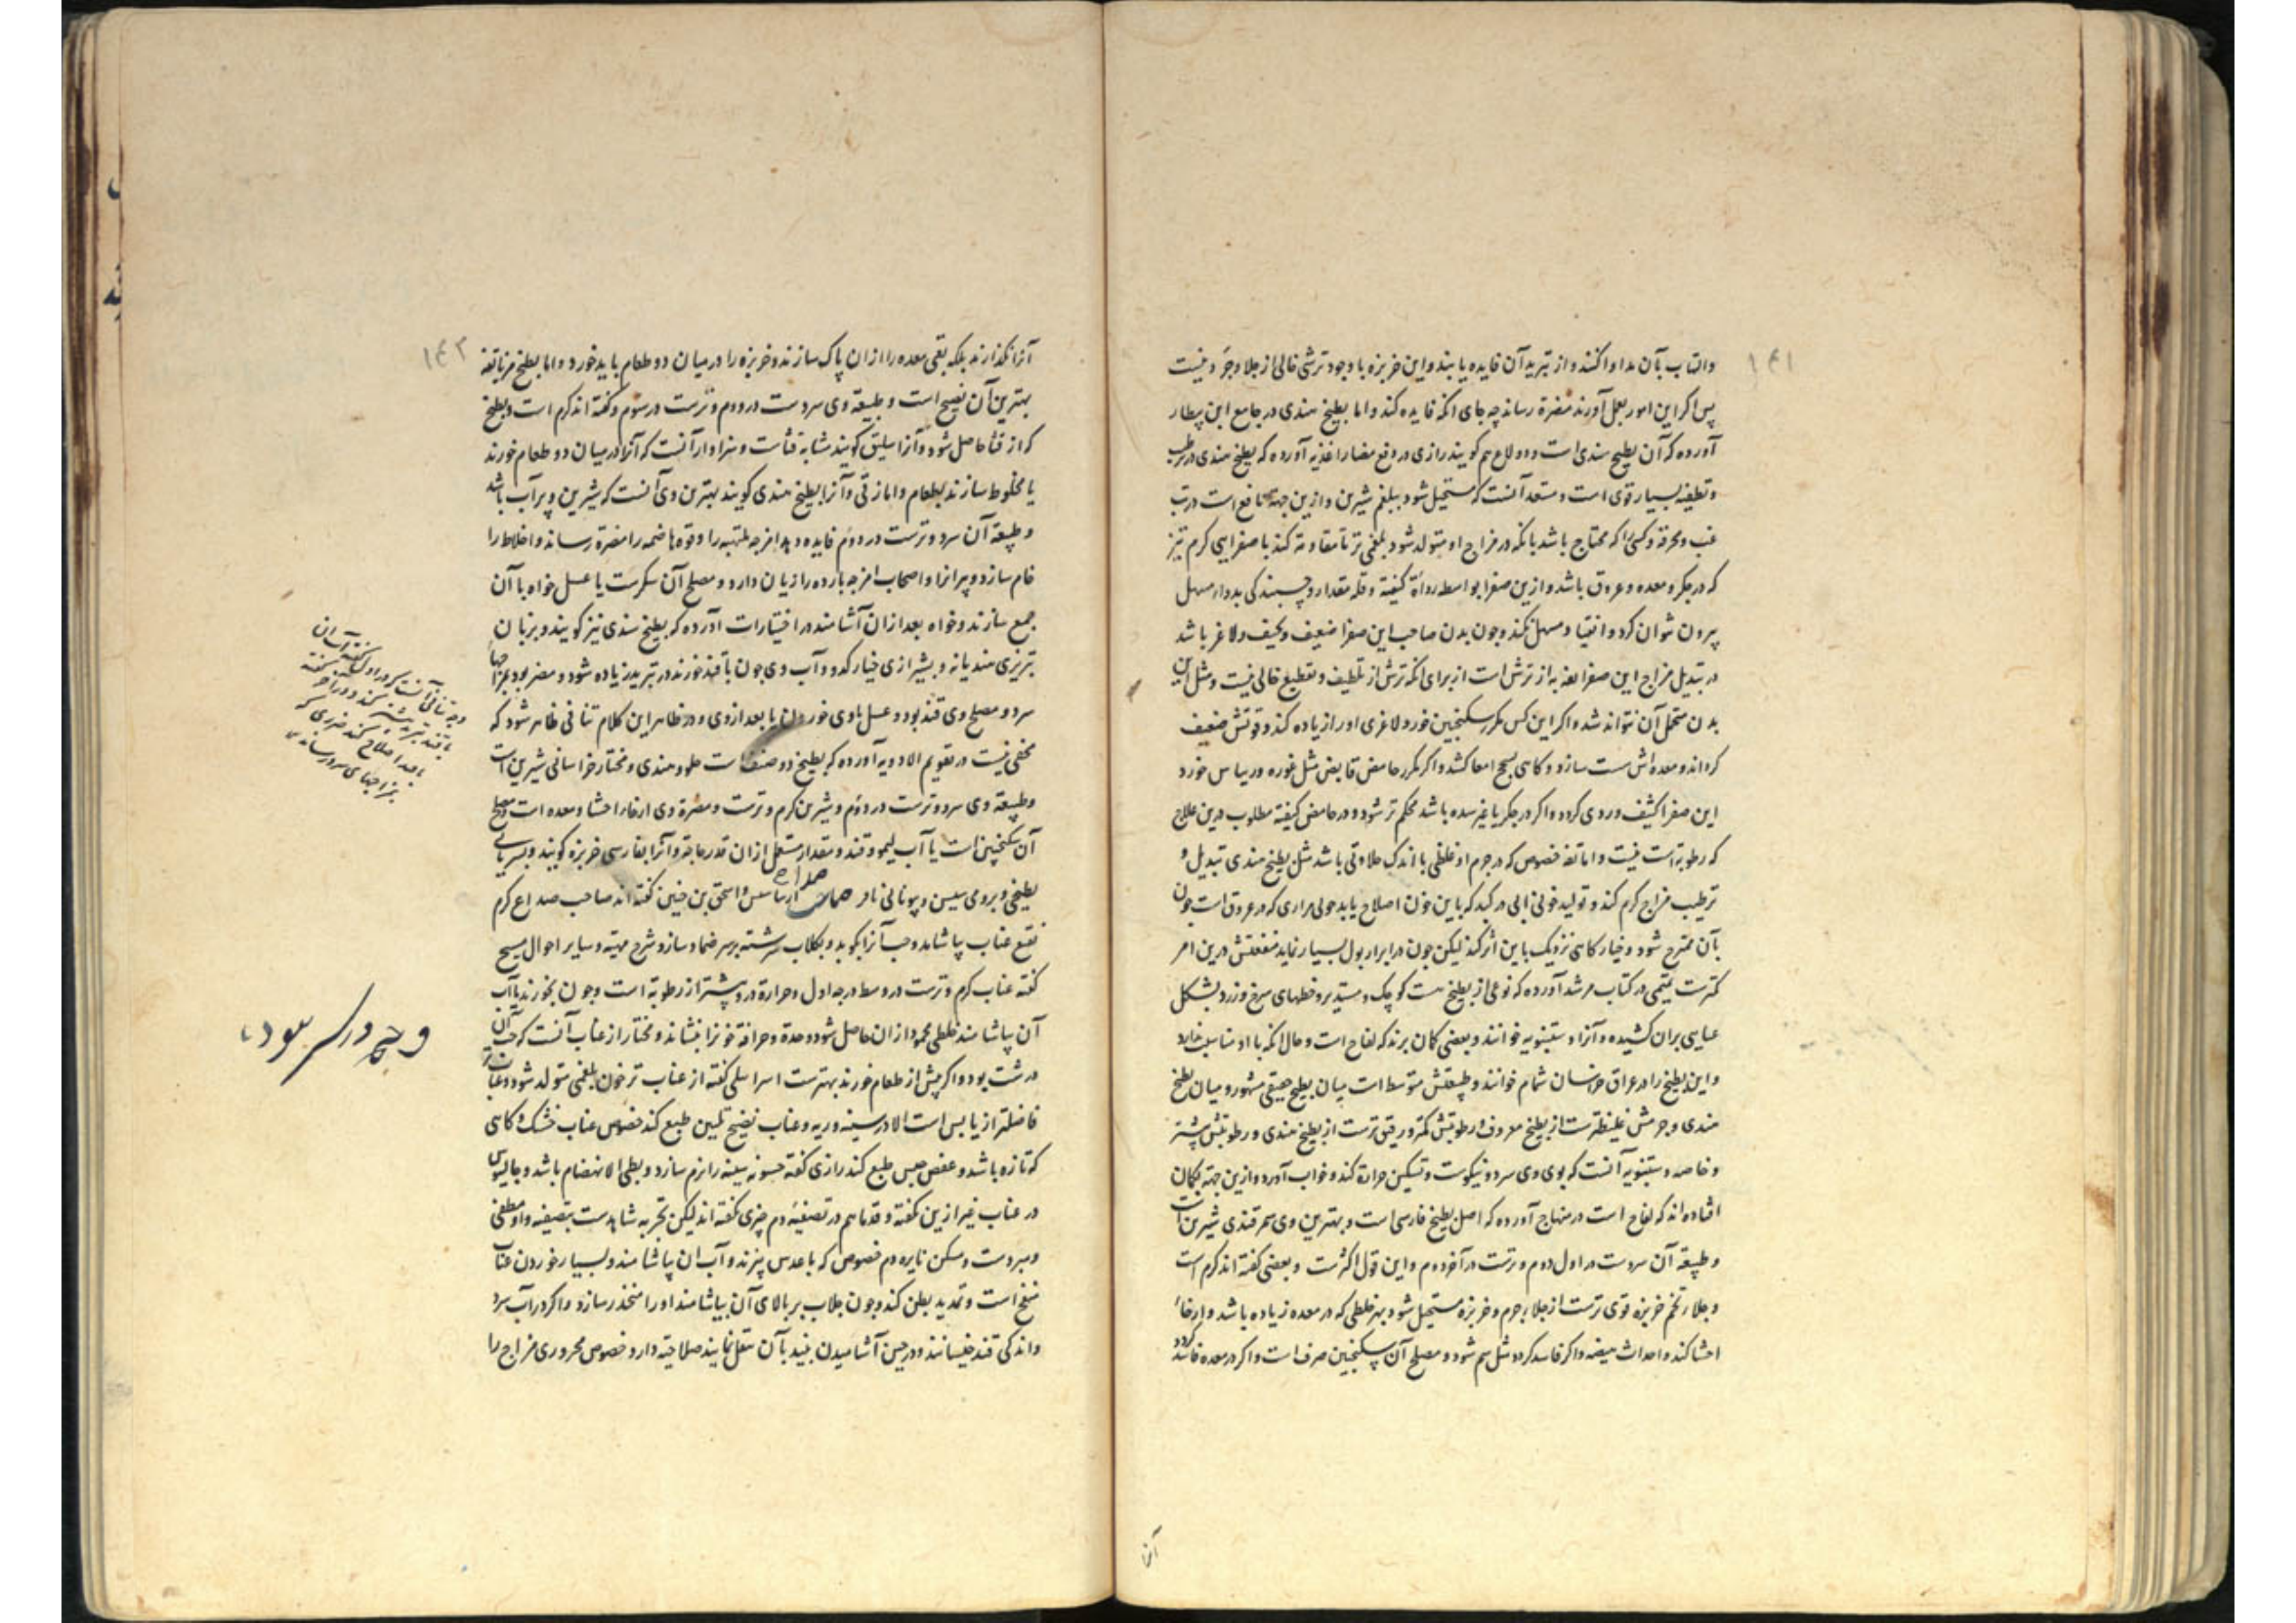 ۱۴۱
والتهاب بآن مداوا کنند و از تبرید آن فایده یابند و این خربزه با وجود ترشی خالی از جلا و جرد نیست
پس اکر این امور بعمل آورند مضرة رساند چه جای آنکه فایده کند و اما بطیخ هندی در جامع ابن بیطار
آورده که آن بطیخ سندی است و دولاع هم کویند رازی در دفع مضار اغذیه آورده که بطیخ هندی در ترطیب
و تطفیه بسیار قوی است و مستعد آنست که مستحیل شود ببلغم شیرین و ازین جهة نافع است در تب
غب و محرقه و کسی را که محتاج باشد بانکه در مزاج او متولد شود بلغمی تر تا مقاومة کند با صفرایی کرم تیز
که در جکر و معده و عروق باشد و ازین صفرا بواسطه رداءة کیفیة و قلة مقدار و چسبندکی بدوا، مسهل
بیرون نتوان کرد و انقیاد مسهل نکند و چون بدن صاحب این صفرا ضعیف و نحیف و لاغر باشد
در تبدیل مزاج این صفرا تفه به از ترش است از برای آنکه ترش از تلطیف و تقطیع خالی نیست و مثل این
بدن متحمل آن نتواند شد و اکر این کس مکرر سکنجبین خورد لاغری او را زیاده کند و قوتش ضعیف
کرداند و معده‌اش سست سازد و کاهی بسحج امعا کشد و اکر مکرر حامض قابض مثل غوره و ریباس خورد
این صفرا کثیف و ردی کردد و اکر در جکر یا غیر سده باشد محکم‌تر شود و در حامض کیفیة مطلوب درین علاج
که رطوبة است نیست و اما تفه خصوص که در جرم او غلظی با اندک حلاوتی باشد مثل بطیخ هندی تبدیل و
ترطیب مزاج کرم کند و تولید خونی آبی در کبد که باین خون اصلاح یابد خونی مراری که در عروق است چون
بآن ممتزج شود و خیار کاهی نزدیک باین اثر کند لیکن چون ادرار بول بسیار نماید منفعتش درین امر
کمترست تمیمی در کتاب مرشد آورده که نوعی از بطیخ هست کوچک و مستدیر و خطهای سرخ و زرد بشکل
عبایی بران کشیده و آنرا دستنبویه خوانند و بعضی کمان برند که لفاح است و حال آنکه با او مناسبت ندارد
و این بطیخ را در عراق خراسان شمام خوانند و طبیعتش متوسط است میان بطیخ حقیقی مشهور و میان بطیخ
هندی و جرمش غلیظترست از بطیخ معروف و رطوبتش کمتر و رقیق‌ترست از بطیخ هندی و رطوبتش بیشتر
و خاصه دستنبویه آنست که بوی وی سرد و نیکوست و تسکین حرارة کند و خواب آورد و ازین جهة بکمان
افتاده‌اند که لفاح است در منهاج آورده که اصل بطیخ فارسی است و بهترین وی سمرقندی شیرین است
و طبیعة آن سردست در اول دوم و ترست در آخر دوم و این قول اکثرست و بعضی کفته‌اند کرم است
و جلاء تخم خربزه قوی‌ترست از جلاء جرم و خربزه مستحیل شود بهر خلطی که در معده زیاده باشد و ارخاء
احشا کند و احداث هیضه و اکر فاسد کردد مثل سم شود و مصلح آن سکنجبین صرف است و اکر در معده فاسد کردد
آنرا
۱۴۲
آنرا نکذارند بلکه بقی معده را ازان پاک سازند و خربزه را در میان دو طعام باید خورد و اما بطیخ مز یا تفه
بهترین آن نضیج است و طبیعة وی سردست در دوم و ترست در سوم و کفته‌اند کرم است و بطیخ
که از قثا حاصل شود و آنرا سلیق کویند مشابه قثاست و سزاوار آنست که آنرا در میان دو طعام خورند
یا مخلوط سازند بطعام و اما زقی و آنرا بطیخ هندی کویند بهترین وی آنست که شیرین و پر آب باشد
و طبیعة آن سرد و ترست در دوم فایده دهد امزجه ملتهبه را و قوه هاضمه را مضرة رساند و اخلاط را
خام سازد و پیرانرا و اصحاب امزجه بارده را زیان دارد و مصلح آن سکرست یا عسل خواه با آن
جمع سازند و خواه بعد ازان آشامند در اختیارات آورده که بطیخ سندی نیز کویند و بزبان
تبریزی هندیانه و بشیرازی خیار کدو و آب وی چون با قند خورند در تبرید زیاده شود و مضر بود بمزاجها
سرد و مصلح وی قند بود و عسل با وی خوردن یا بعد از وی و در ظاهر این کلام تنافی ظاهر شود که
مخفی نیست در تقویم الادویه آورده که بطیخ دو صنف است حلو و هندی و مختار خراسانی شیرین است
و طبیعة وی سرد و ترست در دوم و شیرین کرم و ترست و مضرة وی ارخاء احشا و معده است و مصلح
آن سکنجبین است یا آب لیمو و قند و مقدار مستعمل ازان قدر حاجة و آنرا بفارسی خربزه کویند و بسریانی
بطیخی و برومی سیس و بیونانی نافر واسحق بن حنین کفته‌اند صاحب صداع کرم
نقیع عناب بیاشامد و حب آنرا بکوبد و بکلاب سرشته بر سر ضماد سازد و شرح مهیة و سایر احوال مسیح
کفته عناب کرم و ترست در وسط درجه اول و حرارة در وی بیشتر از رطوبة است و چون بخورند یا آب
آن بیاشامند خلطی محمود ازان حاصل شود و حدة و حرافة خونرا بنشاند و مختار از عناب آنست که حب آن
درشت بود و اکر پیش از طعام خورند بهترست اسرائیلی کفته از عناب تر خون بلغمی متولد شود و عناب تر
فاضلتر از یابس است الا در سینه و ریه و عناب نضیج تلیین طبع کند خصوص عناب خشک و کاهی
که تازه باشد و عفص حبس طبع کند رازی کفته خشونة سینه را نرم سازد و بطی الانهضام باشد و جالینوس
در عناب غیر ازین کفته و قدما هم در تصفیه دم چیزی کفته‌اند لیکن تجربه شاهدست بتصفیه و او مطفی
و مبردست و مسکن نایره دم خصوص که با عدس پزند و آب آن بیاشامند و بسیار خوردن عناب
منفخ است و تمدید بطن کند و چون جلاب بر بالای آن بیاشامند او را منحدر سازد و اکر در آب سرد
و اندکی قند خیسانند و در حین آشامیدن نبیذ بآن تنقل نمایند صلاحیة دارد خصوص محروری مزاج را
وجه تنافی آنست که در اول کفته آب آن
با قند تبرید بیشتر کند و در آخر کفته
با قند اصلاح کند ضرری که
بمزاجهای سرد رساند